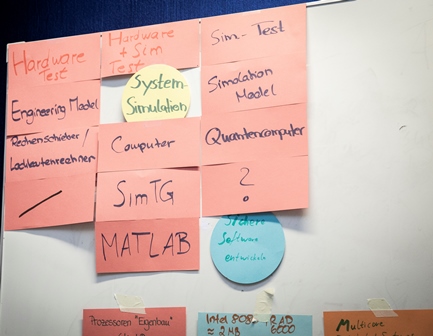 Hardware
Test
Hardware
+ Sim
Test
Sim-Test
System-
Simulation
Engineering Model
Simulation
Model
Rechenschieber /
Lochkartenrechner
Computer
Quantencomputer
/
SimTG
?
MATLAB
Sichere
Software
entwickeln
Prozessoren "Eigenbau"
Intel 808
≈ 2 MB
RAD
6000
Multicore